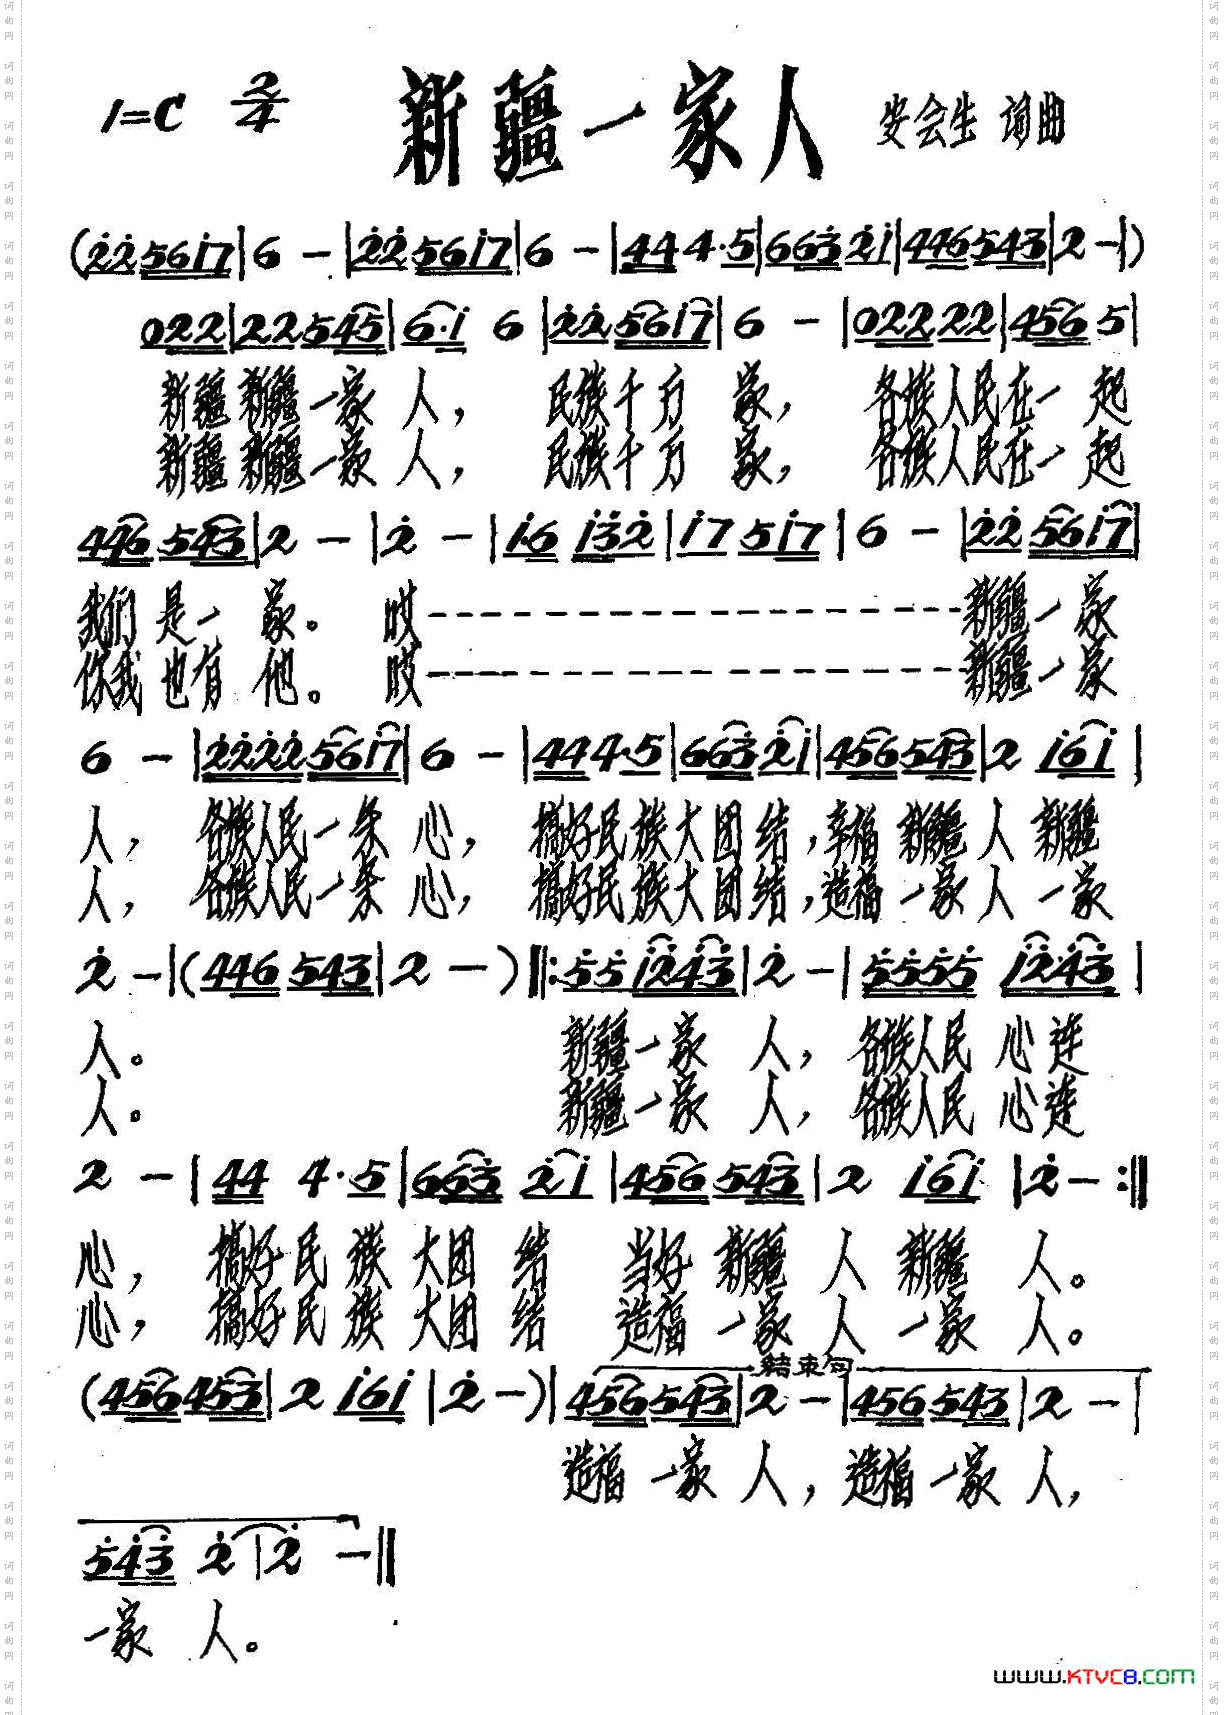 1=C 2/4 新疆一家人 安会生 词曲
(2̇2̇561̇7|6 −|2̇2̇561̇7|6 −|444·5|663̇2̇1̇|446543|2 −|)
022|22545|6·1̇ 6|2̇2̇561̇7|6 −|02222|4565|
新疆 新疆一家 人， 民族千万 家， 各族人民在一 起
新疆 新疆一家 人， 民族千万 家， 各族人民在一 起
446543|2 −|2̇ −|1̇·6 1̇3̇2̇|1̇7 51̇7|6 −|2̇2̇561̇7|
我们 是一 家。 哎－－－－－－－－－－－－－－－－新疆一家
你我 也有 他。 哎－－－－－－－－－－－－－－－－新疆一家
6 −|2̇2̇2̇2̇561̇7|6 −|444·5|663̇2̇1̇|456543|2 1̇61̇|
人， 各族人民一条 心， 搞好民族大团结，幸福 新疆 人 新疆
人， 各族人民一条 心， 搞好民族大团结，造福 一家 人 一家
2̇ −|(446 543|2 −)‖:5̇5̇1̇2̇4̇3̇|2̇ −|5̇5̇5̇5̇ 1̇2̇·4̇3̇|
人。 新疆一家 人， 各族人民 心连
人。 新疆一家 人， 各族人民 心连
2 −|44 4·5|663̇ 2̇1̇|456543|2 1̇61̇|2̇−:‖
心， 搞好民族 大团 结 当好 新疆 人 新疆 人。
心， 搞好民族 大团 结 造福 一家 人 一家 人。
结束句
(456453|2 1̇61̇|2̇ −)|456543|2 −|456543|2 −|
造福 一家 人，造福 一家 人，
5̇4̇3̇ 2̇|2̇ −‖
一家 人。
www.KTVC8.com